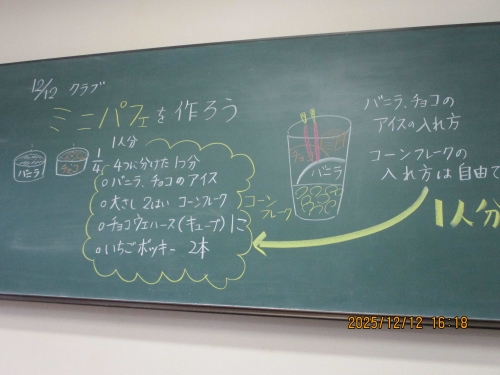 12/12 クラブ
ミニパフェを作ろう
1人分
バニラ
チョコ
1/4
4つに分けた1つ分
○バニラ、チョコのアイス
○大さじ2はい コーンフレーク
○チョコウエハース(キューブ)1こ
○いちごポッキー 2本
チョコ
バニラ
コーン
フレーク
バニラ、チョコの
アイスの入れ方
コーンフレークの
入れ方は自由で
1人分
2025/12/12 16:18